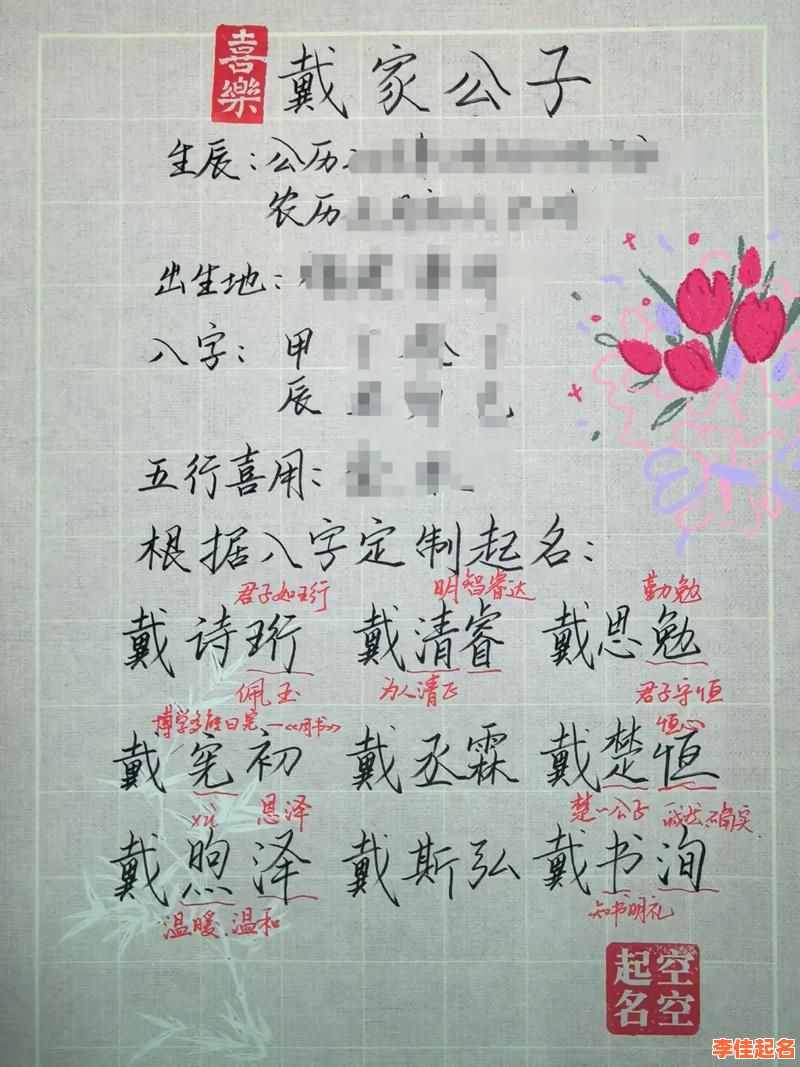 喜樂
戴家公子
生辰：公历：
农历
出生地：
八字：甲
辰
五行喜用：
根据八字定制起名：
君子如珩 明智睿达 勤勉
戴诗珩 戴清睿 戴思勉
佩玉 为人清正 君子守恒
博学多能曰宪—《周书》 恒心
戴宪初 戴丞霖 戴楚恒
xù 恩泽 楚一公子 诚然、确实
戴煦泽 戴斯弘 戴书洵
温暖、温和 知书明礼
空空起名
李佳起名